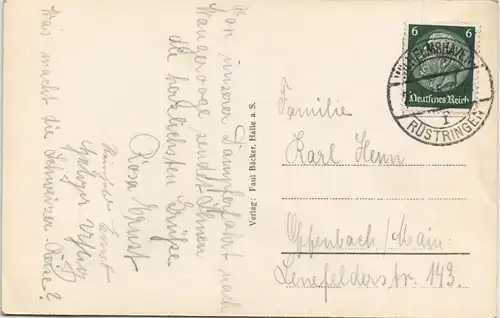 Von unserer Dampferfahrt nach
Wangerooge sendet Ihnen
die herzlichsten Grüße
Rosa Ernst
Ernst
Was macht die Schweizer Reise?
Verlag: Paul Bäcker, Halle a. S.
6 6
Deutsches Reich
WILHELMSHAVEN
RÜSTRINGEN
Familie
Karl Henn
Offenbach/Main
Senefelderstr. 143.